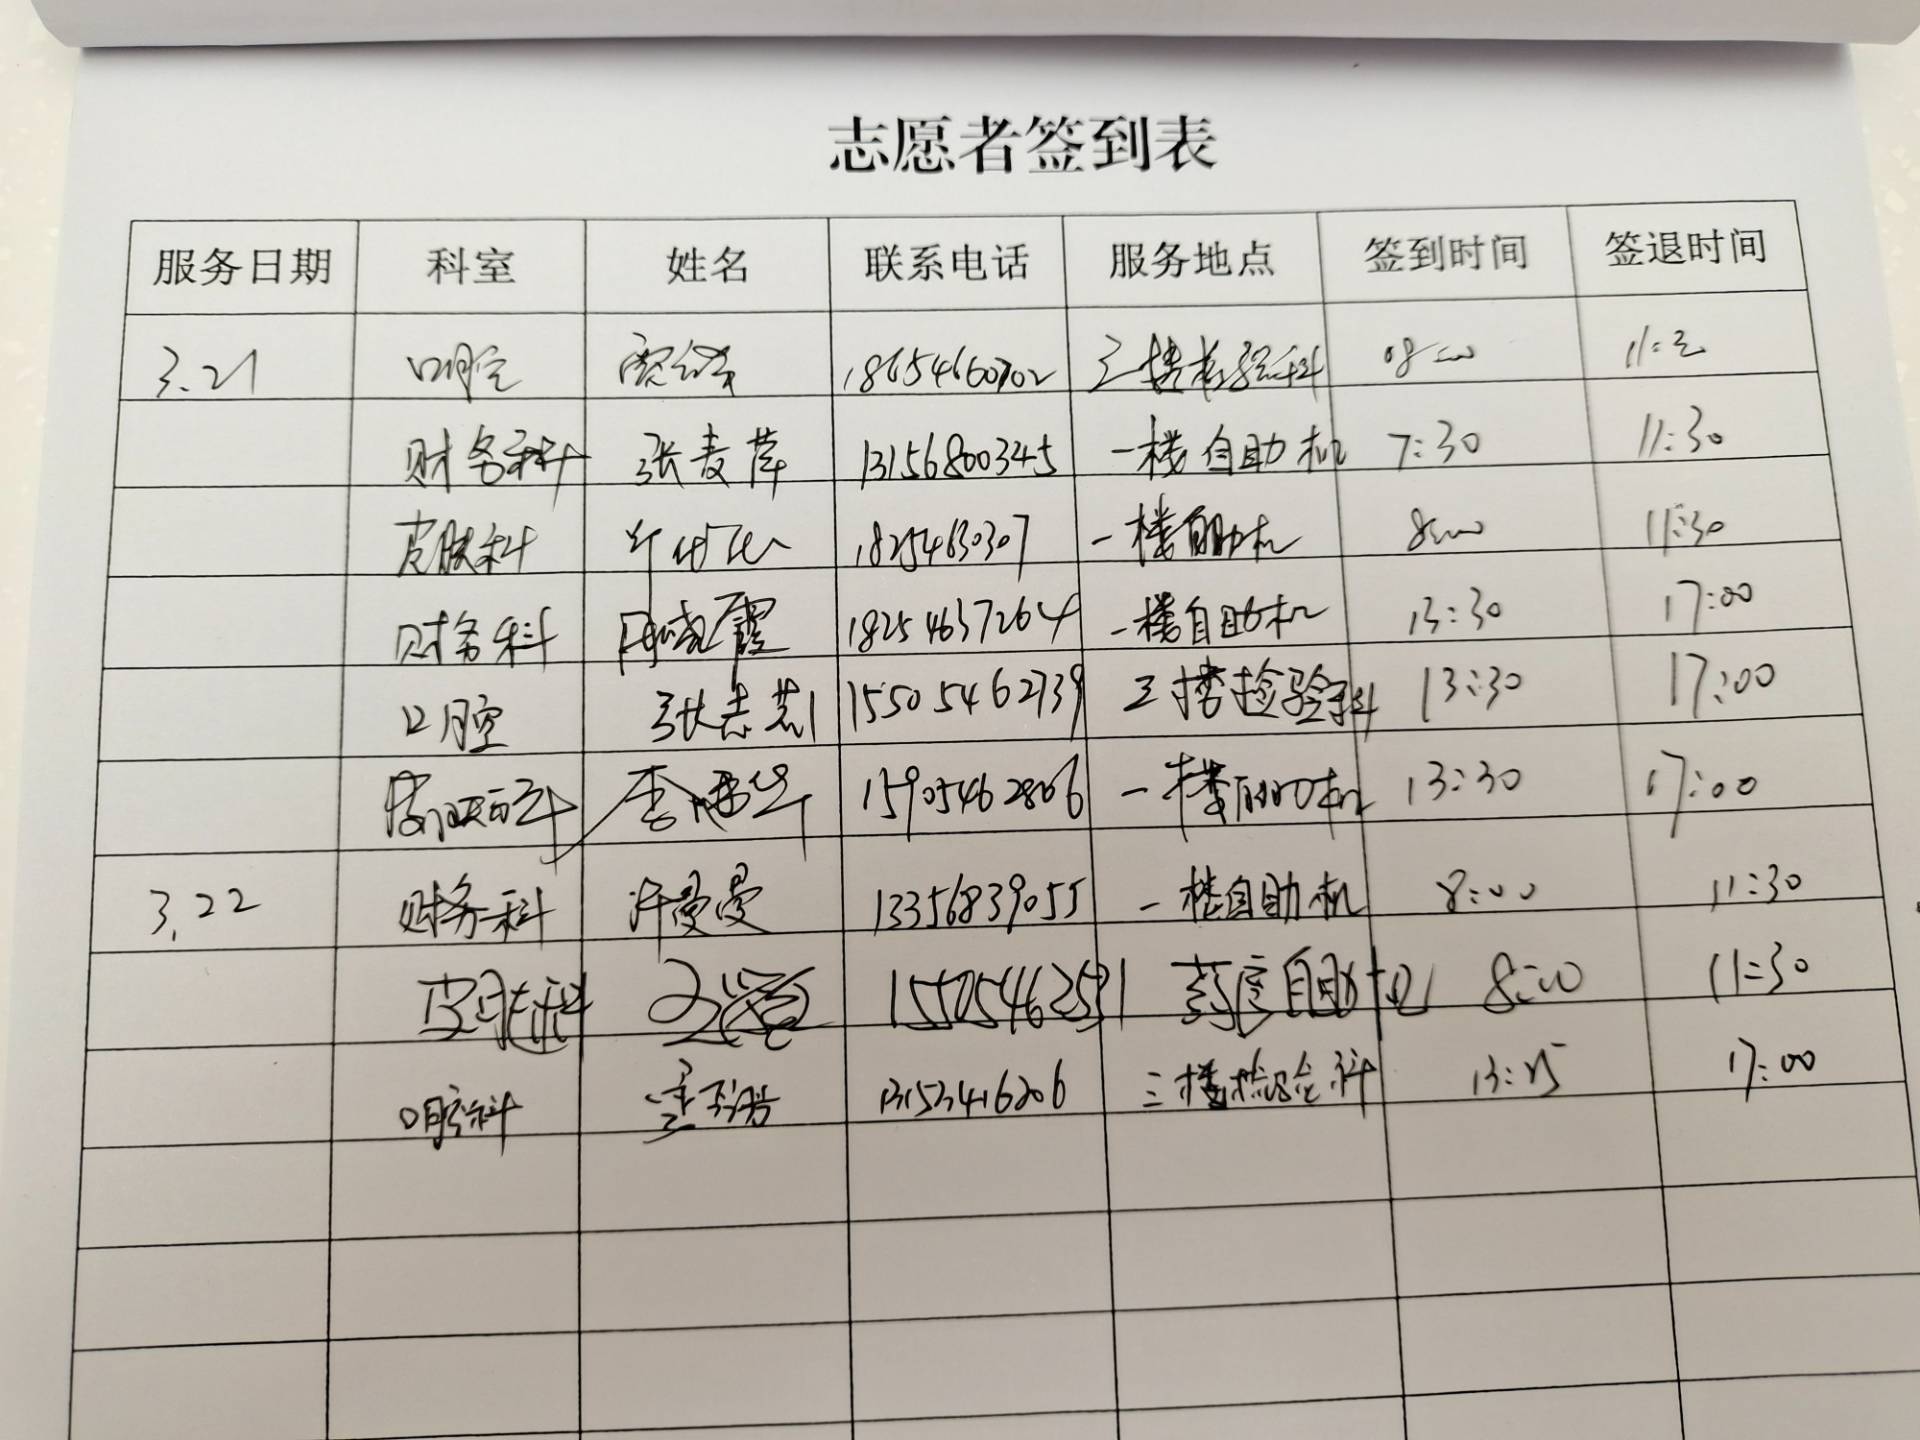 志愿者签到表
服务日期 科室 姓名 联系电话 服务地点 签到时间 签退时间
3.21 口腔 18654660702 三楼检验科 08:00
财务科 张麦萍 13156800345 一楼自助机 7:30 11:30
皮肤科 18254630307 一楼自助机 8:00 11:30
财务科 周晓霞 18254637264 一楼自助机 13:30 17:00
口腔 张志荒 15505462739 三楼检验科 13:30 17:00
15905462806 一楼自助机 13:30 17:00
3.22 财务科 许曼曼 13356839055 一楼自助机 8:00 11:30
皮肤科 15505462531 自助机 8:00 11:30
口腔科 13153416206 三楼检验科 17:00